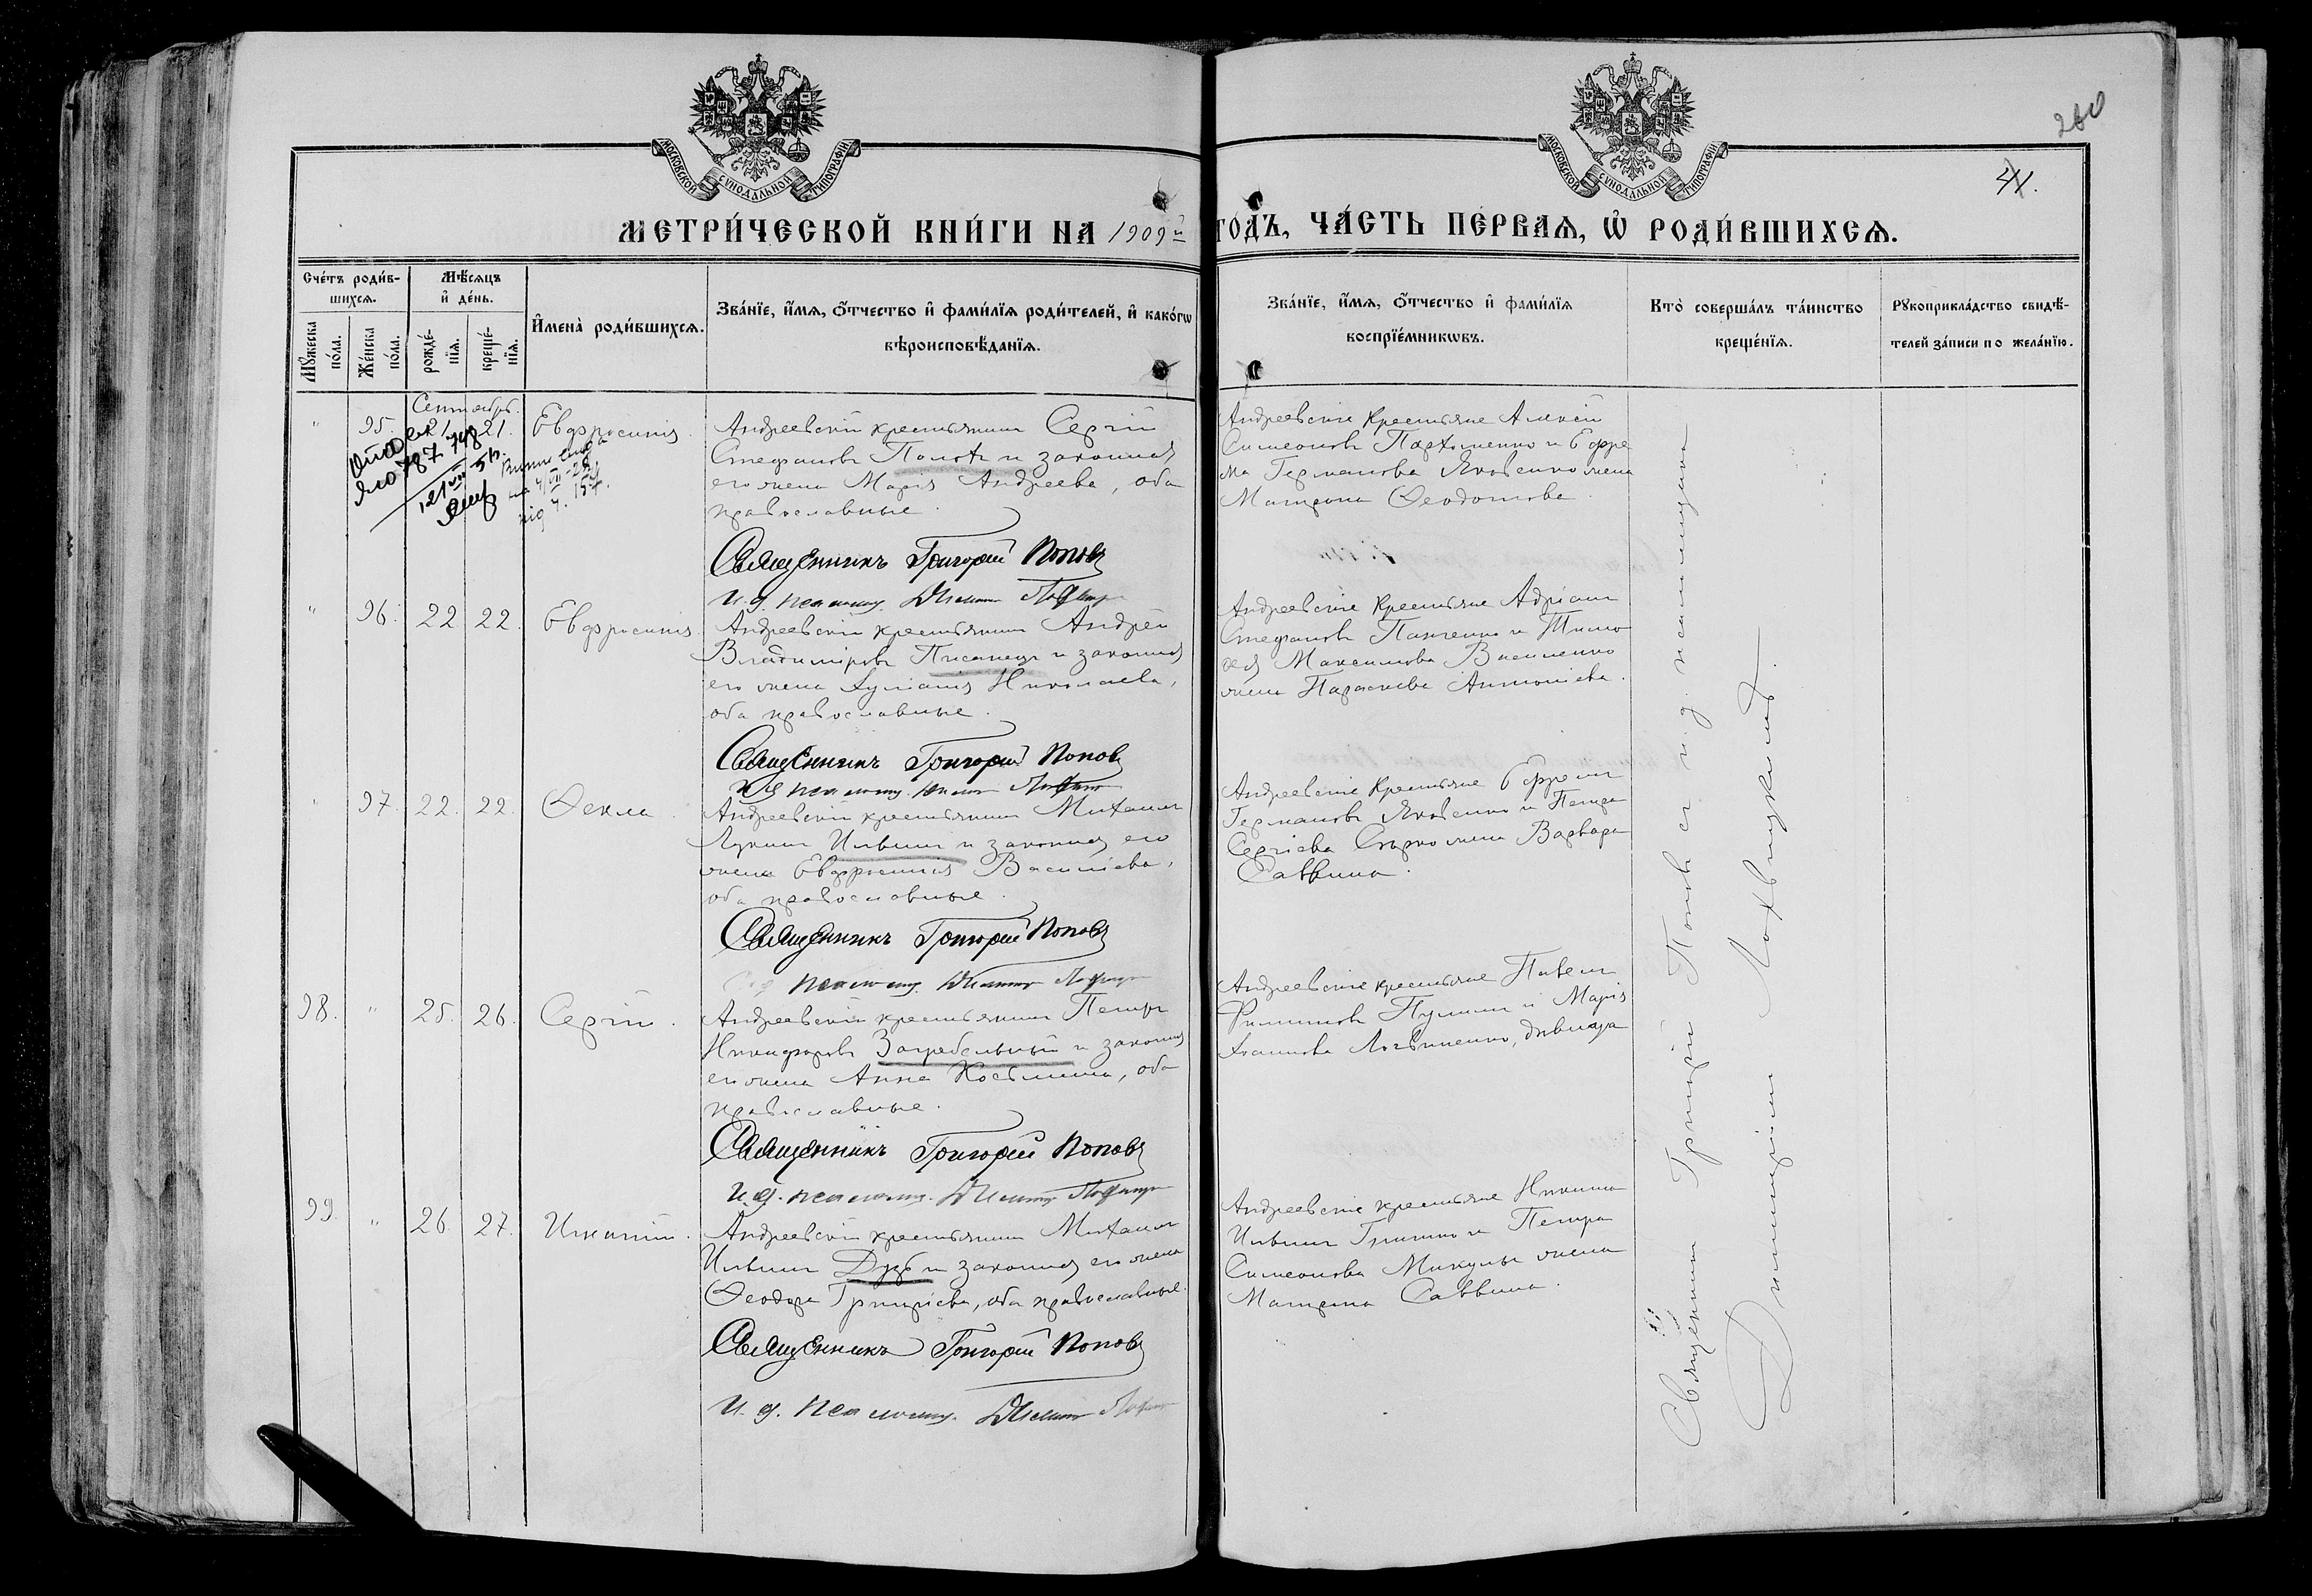 МОСКОВСКОЙ СУНОДАЛЬНОЙ ТИПОГРАФІИ
МОСКОВСКОЙ СУНОДАЛЬНОЙ ТИПОГРАФІИ
260
МЕТРИ́ЧЕСКОЙ КНИ́ГИ НА 1909й
ГОДЪ, ЧА́СТЬ ПЕ́РВАѦ, Ѡ҆ РОДИ́ВШИХСѦ.
Сче́тъ роди́в-
шихсѧ.
Мꙋ́жеска
по́ла.
Же́нска
по́ла.
Мѣ́сѧцъ
и҆ де́нь.
рожде́-
нїѧ.
креще́-
нїѧ.
И҆мена̀ роди́вшихсѧ.
Зва́нїе, и҆́мѧ, ѻ҆́тчество и҆ фами́лїѧ роди́телей, и҆ како́гѡ
вѣроисповѣ́данїѧ.
Зва́нїе, и҆́мѧ, ѻ҆́тчество и҆ фами́лїѧ
воспрїе́мникѡвъ.
Кто̀ соверша́лъ та́инство
креще́нїѧ.
Рꙋкоприкла́дство свидѣ́-
телей за́писи по жела́нїю.
Сентябрь.
" 95. 21. 21. Евфросинія.
Андреевскій крестьянинъ Сергій
Стефановъ Палютъ и законная
его жена Марія Андреева, оба
православные.
Священникъ Григорій Поповъ
И. д. псаломщ. Димит
Андреевскіе крестьяне Алексій
Симеоновъ Пархоменко и Ефре
ма Германова Яковенко жена
Матрона Феодотова.
" 96. 22. 22. Евфросинія.
Андреевскій крестьянинъ Андрей
Владиміровъ Писанецъ и законная
его жена Іуліанія Николаева,
оба православные.
Священникъ Григорій Поповъ
И. д. псаломщ.
Андреевскіе крестьяне Адріанъ
Стефановъ Панченко и Тимо
фея Максимова Василенко
жена Параскева Антоніева.
" 97. 22. 22. Фекла.
Андреевскій крестьянинъ Михаилъ
Лукинъ Ильинъ и законная его
жена Евфросинія Василіева,
оба православные.
Священникъ Григорій Поповъ
псаломщ. Димитр
Андреевскіе крестьяне Ефремъ
Германовъ Яковенко и Петра
Сергіева Сѣрко жена Варвара
Саввина.
98. " 25. 26. Сергій.
Андреевскій крестьянинъ Петръ
Никифоровъ Загребельный и законная
его жена Анна Косьмина, оба
православные.
Священникъ Григорій Поповъ
И. д. псаломщ. Димитр
Андреевскіе крестьяне Павелъ
Филиповъ и Марія
Іоаннова Логвиненко, дѣвица
99. " 26. 27. Игнатій.
Андреевскій крестьянинъ Михаилъ
Ильинъ Дубъ и законная его жена
Феодора Григоріева, оба православные.
Священникъ Григорій Поповъ
И. д. псаломщ. Димит
Андреевскіе крестьяне Никита
Ильинъ Гришко и Петра
Симеонова Микулы жена
Матрона Саввина.
Священникъ Григорій Поповъ съ и. д. псаломщика
Димитріемъ Лохвицкимъ.